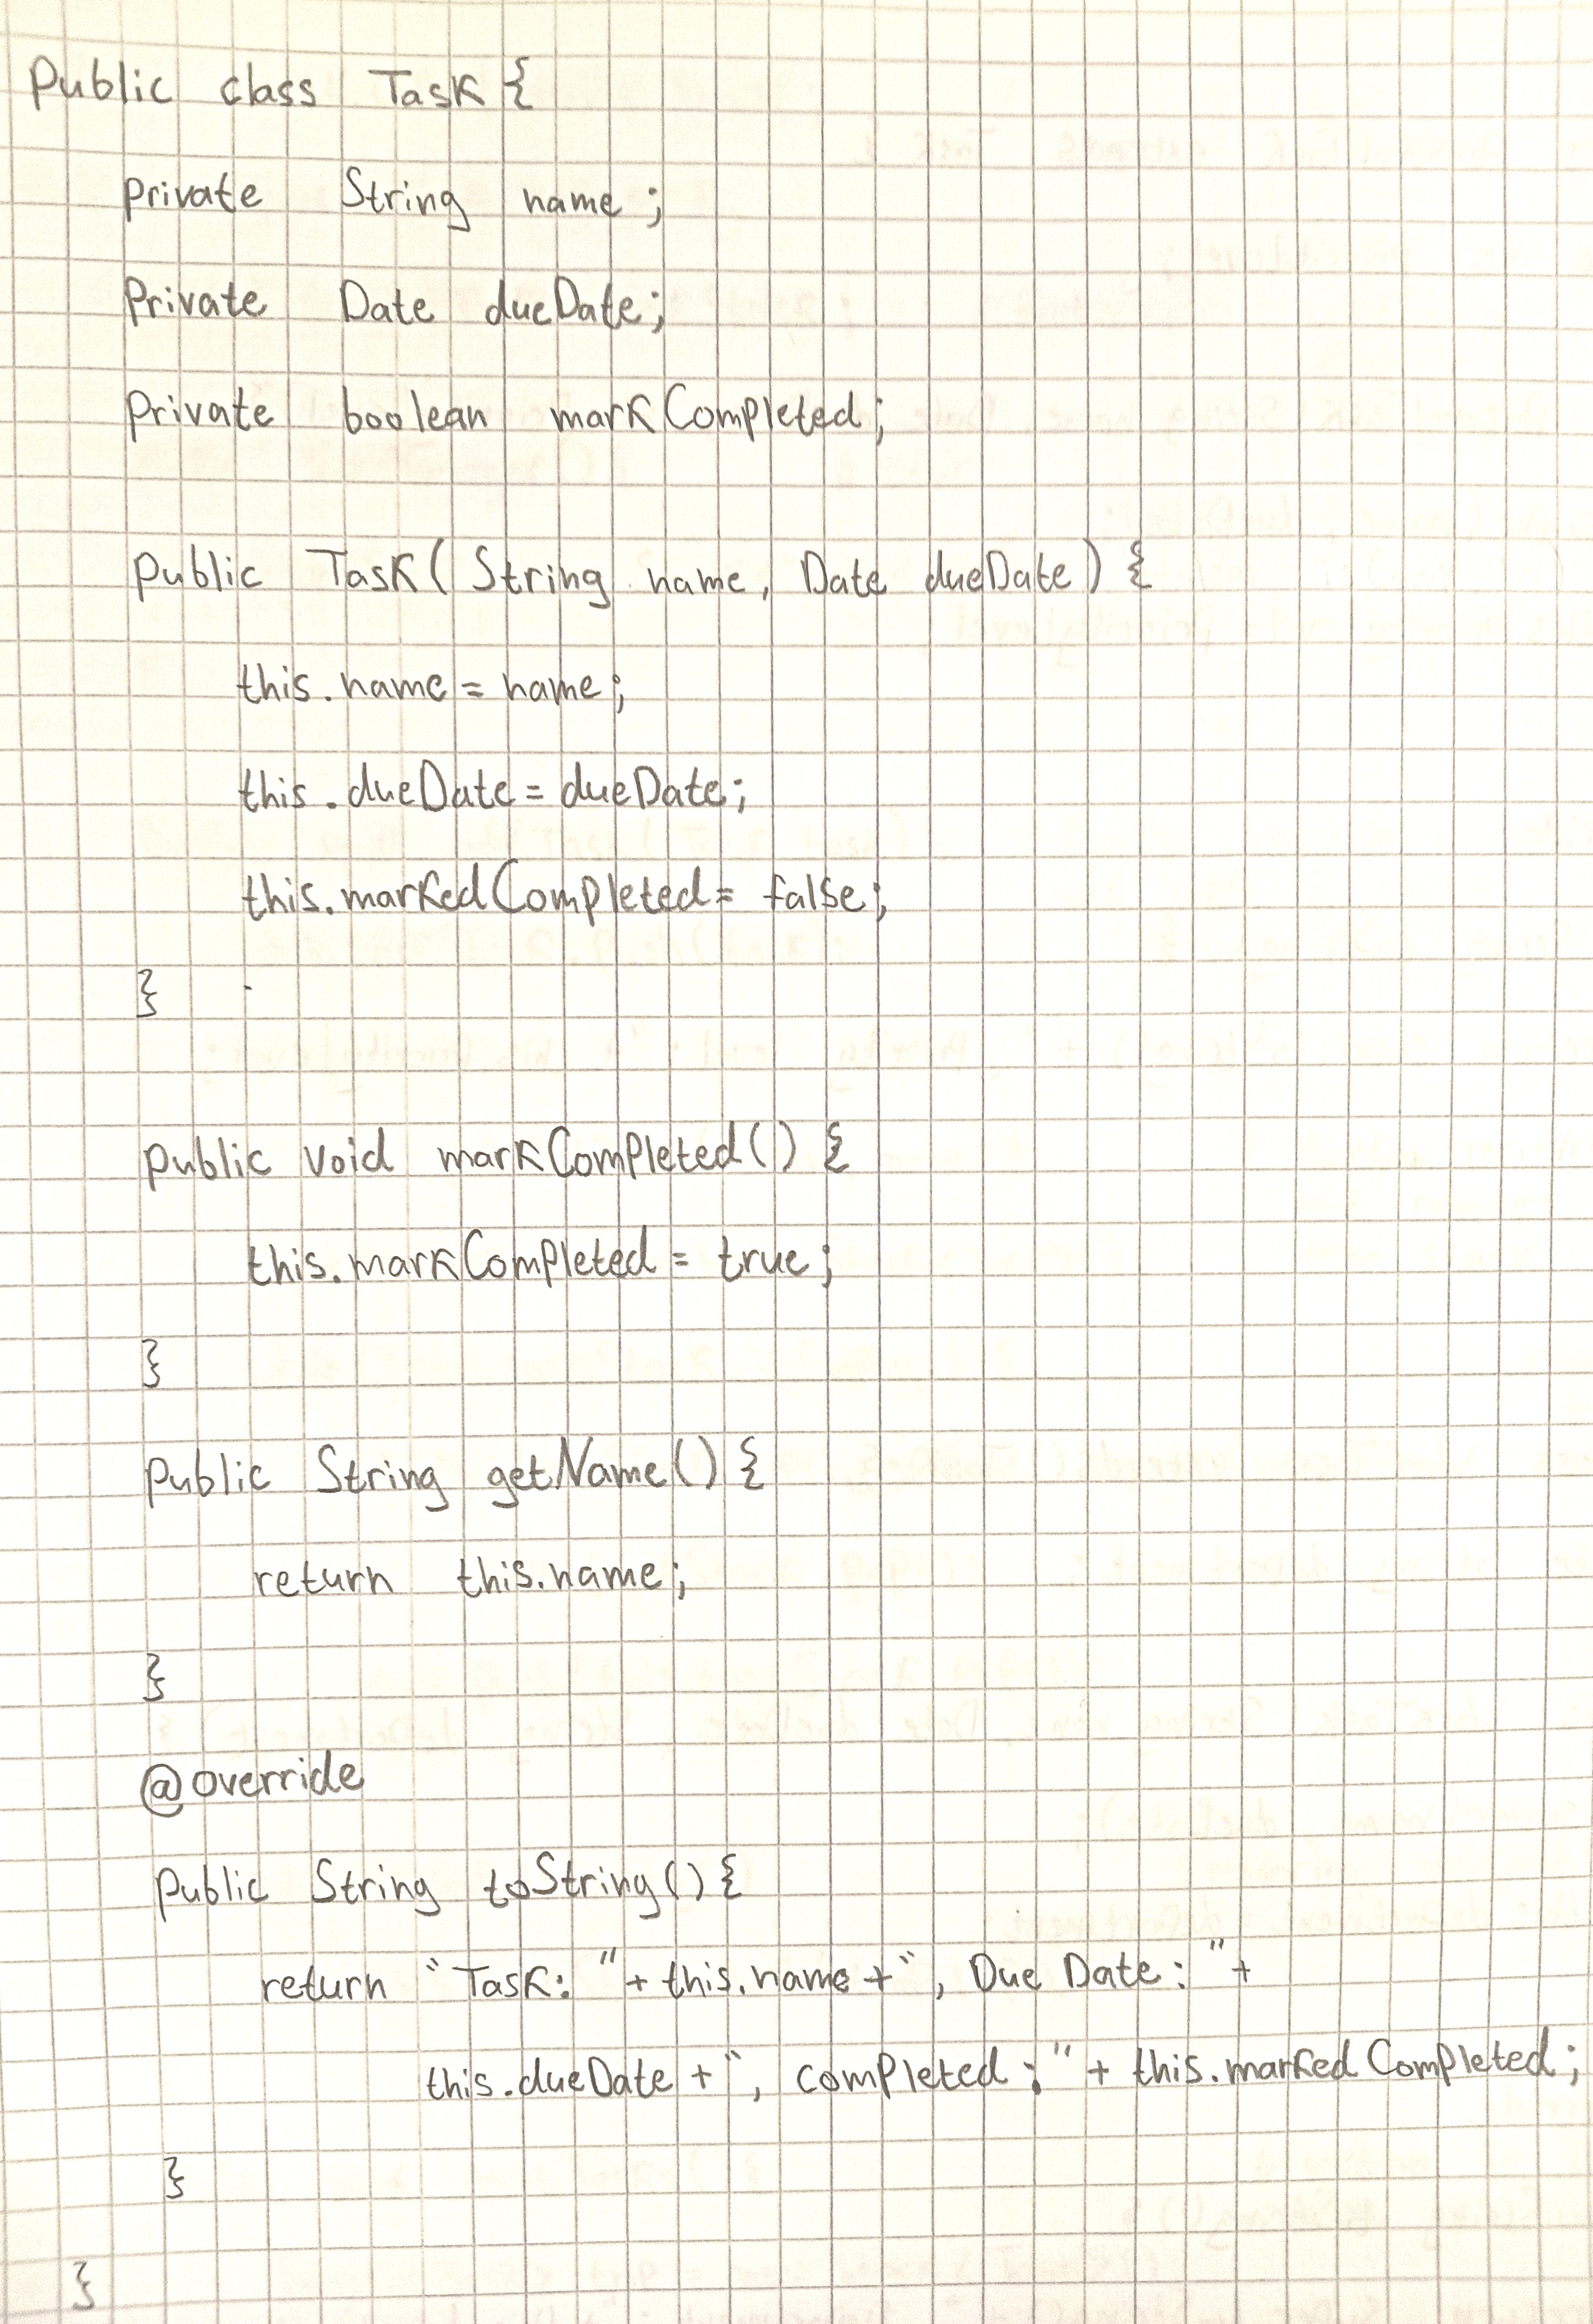 Public class Task {
private String name;
Private Date dueDate;
Private boolean markCompleted;
public Task(String name, Date dueDate) {
this.name = name;
this.dueDate = dueDate;
this.markedCompleted = false;
}
public void markCompleted() {
this.markCompleted = true;
}
public String getName() {
return this.name;
}
@override
public String toString() {
return "Task: " + this.name + ", Due Date: " +
this.dueDate + ", completed: " + this.markedCompleted;
}
}